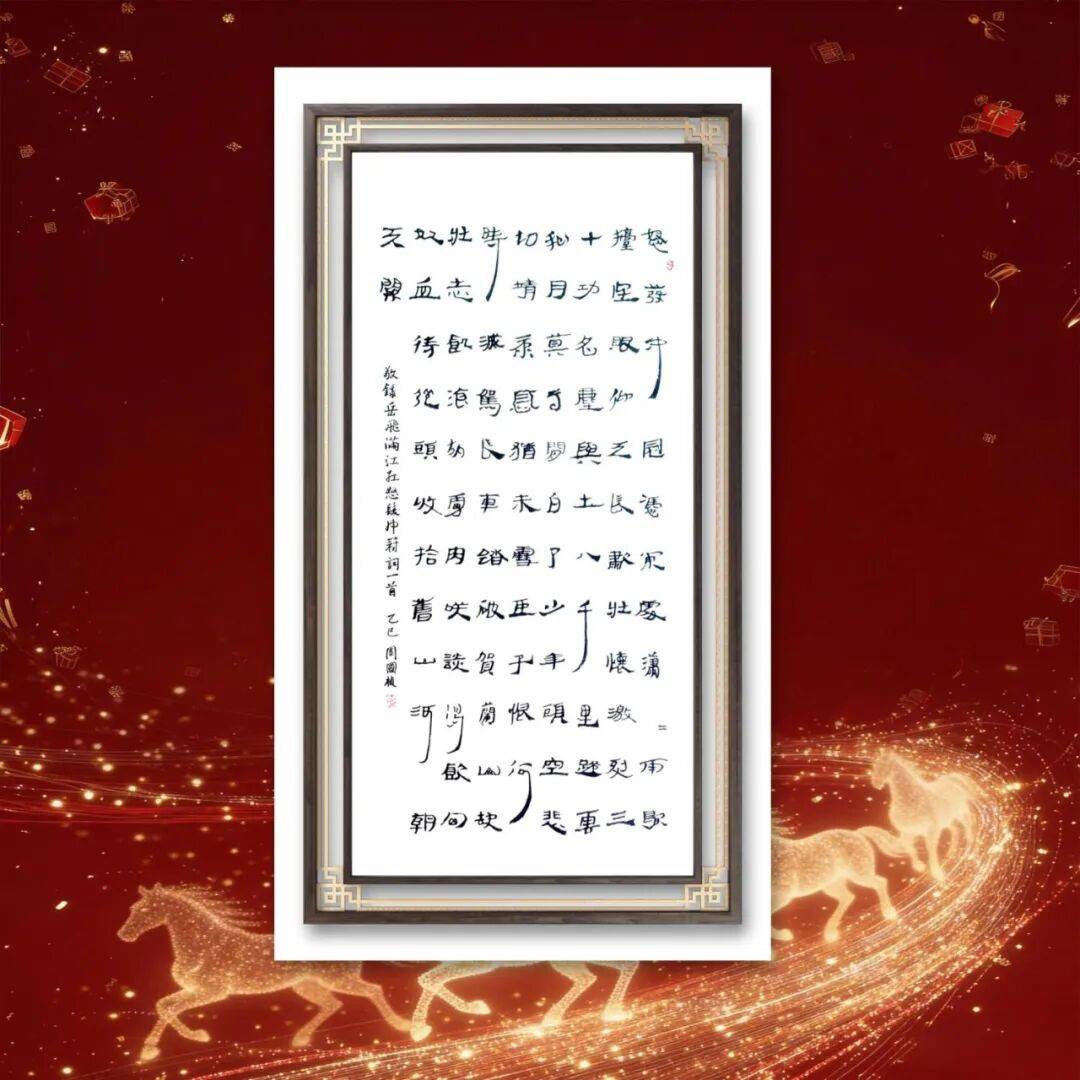 怒發冲冠憑闌處瀟〃雨歇
擡望眼仰天長歗壯懷激烈三
十功名塵與土八千里路雲
和月莫等閒白了少年頭空悲
切靖康恥猶未雪臣子恨何
時滅駕長車踏破賀蘭山缺
壯志飢飡胡虜肉笑談渴飲匈
奴血待從頭收拾舊山河朝
天闕
敬錄岳飛滿江紅怒髮冲冠詞一首 乙巳 周國